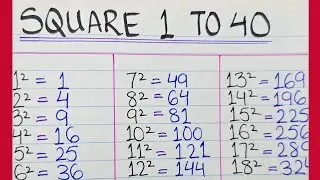 SQUARE 1 TO 40
1² = 1
2² = 4
3² = 9
4² = 16
5² = 25
6² = 36
7² = 49
8² = 64
9² = 81
10² = 100
11² = 121
12² = 144
13² = 169
14² = 196
15² = 225
16² = 256
17² = 289
18² = 324